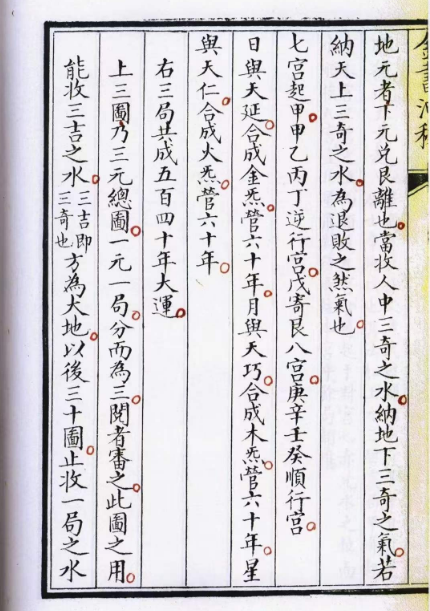 地元者下元兌艮離也當收人中三奇之水納地下三奇之氣若
納天上三奇之水為退敗之煞氣也
七宮起甲甲乙丙丁逆行宮戊寄艮八宮庚辛壬癸順行宮
日與天延合成金炁管六十年月與天巧合成木炁管六十年星
與天仁合成火炁管六十年
右三局共成五百四十年大運
上三圖乃三元總圖一元一局分而為三閱者審之此圖之用
能收三吉之水三吉即三奇也方為大地以後三十圖止收一局之水